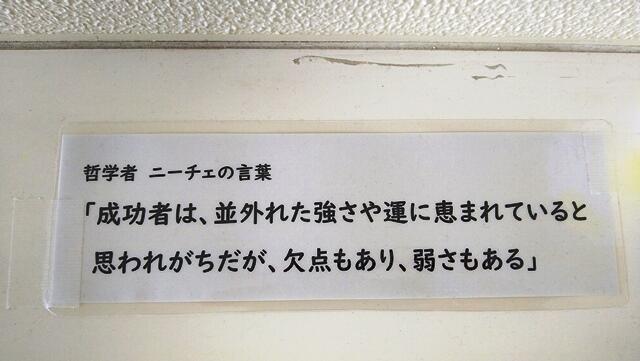 哲学者 ニーチェの言葉
「成功者は、並外れた強さや運に恵まれていると
思われがちだが、欠点もあり、弱さもある」